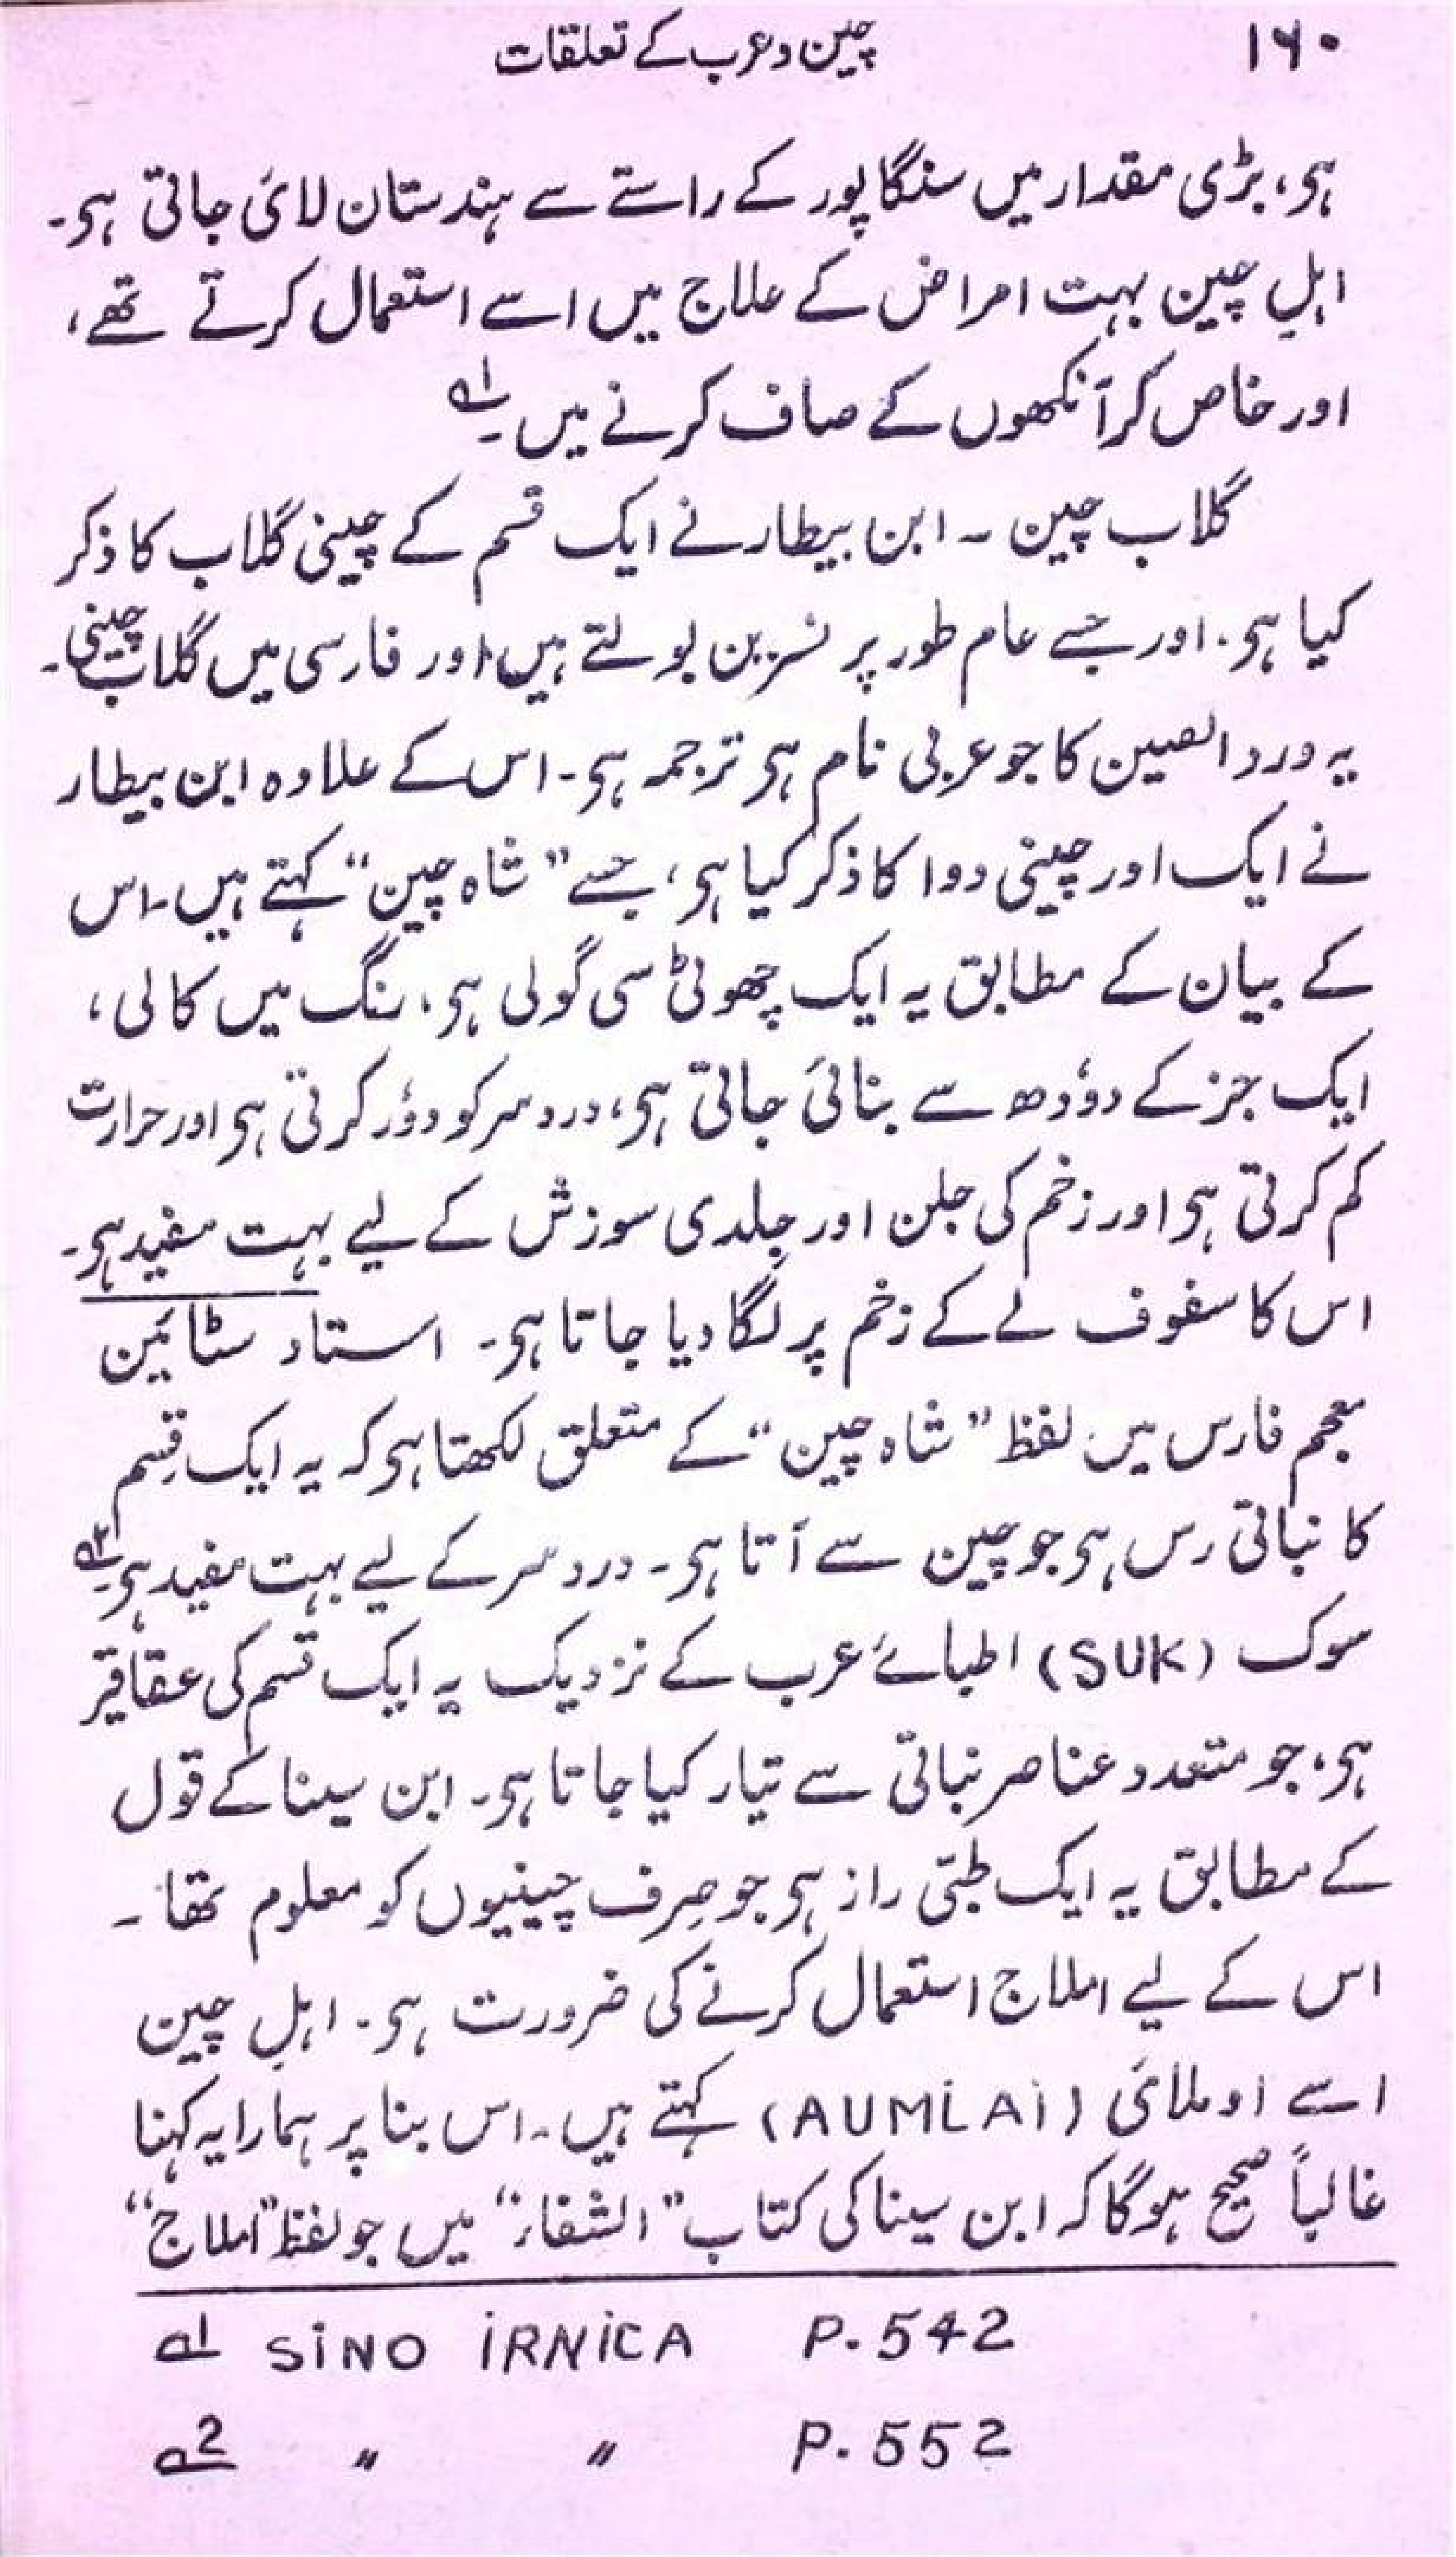 ۱۶۰ چین و عرب کے تعلقات
ہی، بڑی مقدار میں سنگاپور کے راستے سے ہندستان لائی جاتی ہی۔
اہلِ چین بہت امراض کے علاج میں اسے استعمال کرتے تھے،
اور خاص کر آنکھوں کے صاف کرنے میں۔ ؂۱
گلاب چین ۔ ابن بیطار نے ایک قسم کے چینی گلاب کا ذکر
کیا ہی۔ اور جسے عام طور پر نسرین بولتے ہیں اور فارسی میں گلاب چینی۔
یہ ورد الصین کا جو عربی نام ہی ترجمہ ہی۔ اس کے علاوہ ابن بیطار
نے ایک اور چینی دوا کا ذکر کیا ہی، جسے ”شاہ چین“ کہتے ہیں۔ اس
کے بیان کے مطابق یہ ایک چھوٹی سی گولی ہی، رنگ میں کالی،
ایک جز کے دوٗدھ سے بنائی جاتی ہی، درد سر کو دوٗر کرتی ہی اور حرارت
کم کرتی ہی اور زخم کی جلن اور جِلدی سوزش کے لیے بہت مفید ہی۔
اس کا سفوف لے کے زخم پر لگا دیا جاتا ہی۔ استاد سٹائین
معجم فارس میں لفظ ”شاہ چین“ کے متعلق لکھتا ہی کہ یہ ایک قِسم
کا نباتی رس ہی جو چین سے آتا ہی۔ درد سر کے لیے بہت مفید ہی۔ ؂۲
سوک (SUK) اطبائے عرب کے نزدیک یہ ایک قسم کی عقاقیر
ہی، جو متعدد عناصر نباتی سے تیار کیا جاتا ہی۔ ابن سینا کے قول
کے مطابق یہ ایک طبّی راز ہی جو صِرف چینیوں کو معلوم تھا۔
اس کے لیے املاج استعمال کرنے کی ضرورت ہی۔ اہلِ چین
اسے اوملائی (AUMLAI) کہتے ہیں۔ اس بنا پر ہمارا یہ کہنا
غالباً صحیح ہوگا کہ ابن سینا کی کتاب ”الشفاء“ میں جو لفظ ”املاج“
؂1 SINO IRNICA P. 542
؂2 〃 〃 P. 552